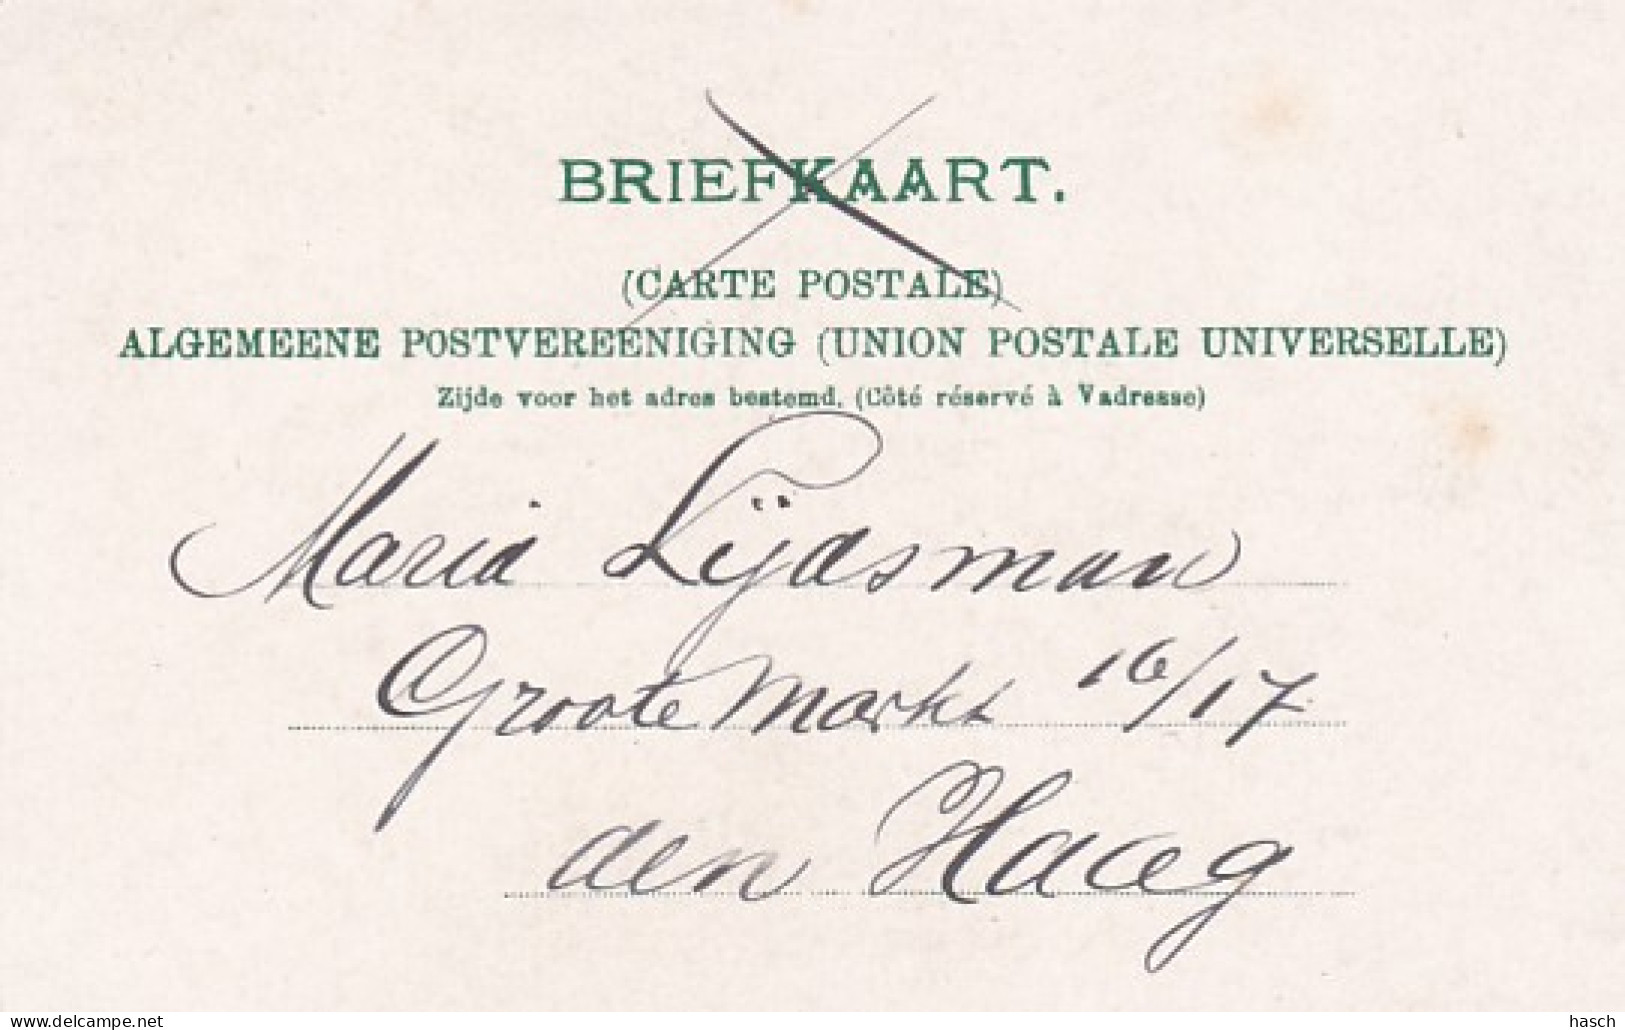 BRIEFKAART.
(CARTE POSTALE)
ALGEMEENE POSTVEREENIGING (UNION POSTALE UNIVERSELLE)
Zijde voor het adres bestemd. (Côté réservé à Vadresse)
Maria Lÿdsman
Groote Markt 16/17
den Haag
www.delcampe.net
hasch